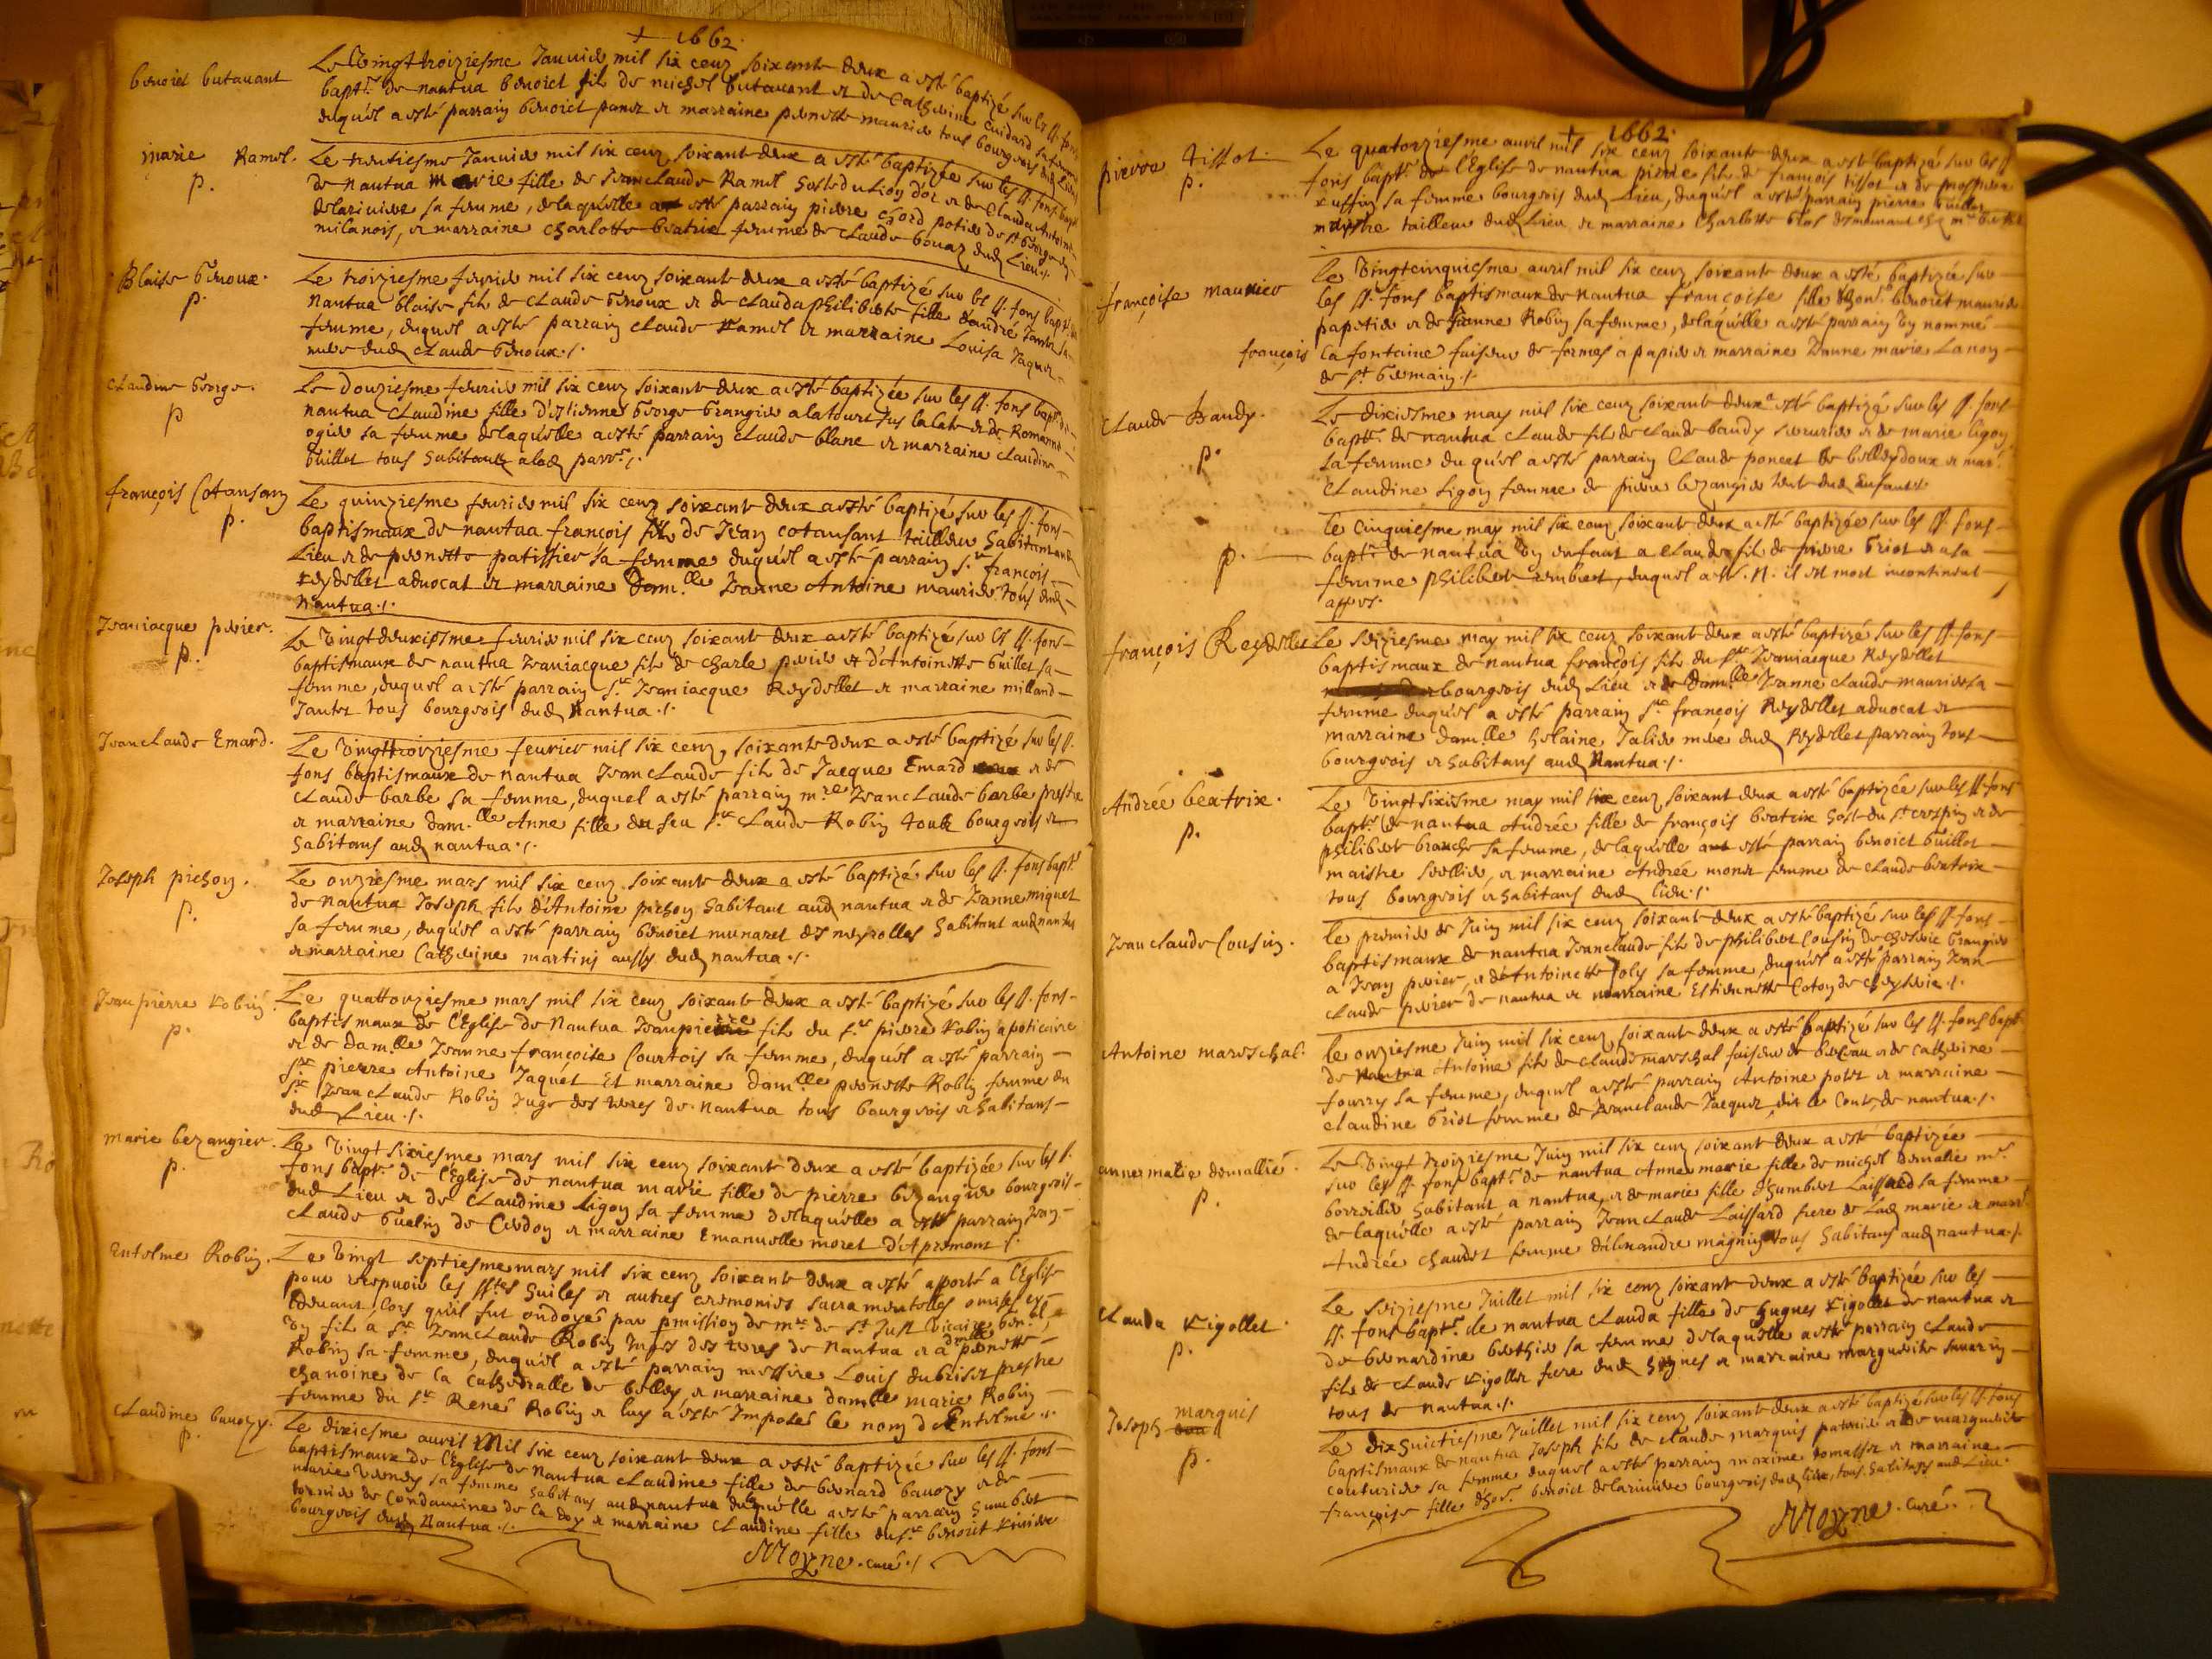 + 1662.
benoict butauant
Le Vingt troiziesme Januier mil six cenz soixante deux a esté baptizé sur les ss. fons
bapt.x de nantua benoict fils de michel butauant et de Catherine Cuidard sa femme
duquel a esté parrain benoict panet et marraine pernette maurier tous bourgeois dud. Lieu
marie Ramel.
p.
Le trentiesme Januier mil six cenz soixante deux a esté baptizée sur les ss. fons bapt.
de Nantua Marie fille de Jean claude Ramel hoste du Lion d'or et de Clauda Antoine
delariuiere sa femme, de laquelle a esté parrain pierre potier de st George
milanois, et marraine Charlotte beatrix femme de Claude bouaz dud. Lieu./.
Blaise Genoux.
p.
Le troiziesme feurier mil six cenz soixante deux a esté baptizé sur les ss. fons bapt.
Nantua blaise fils de Claude Genoux et de Clauda philiberte fille d'andré Jantet sa
femme, duquel a esté parrain Claude Ramel et marraine Louisa Jaquet
mere dud. Claude Genoux./.
Claudine George.
p
Le Douziesme feurier mil six cenz soixante deux a esté baptizée sur les ss. fons bapt. de
nantua Claudine fille d'Estienne George Grangier a la tour sus la lale et de Romanne
ogier sa femme de laquelle a esté parrain Claude blanc et marraine Claudine
Guillot tous habitants a lad. parr.e/.
françois Cotansan
p.
Le quinziesme feurier mil six cenz soixante deux a esté baptizé sur les ss. fons
baptismaux de nantua françois fils de Jean cotansant tailleur habitant aud.
Lieu et de pernette patissier sa femme duquel a esté parrain s.r françois
reydellet aduocat et marraine Dam.lle Jeanne Antoine maurier tous dud.
Nantua./.
Jean jacque perier.
p.
Le Vingt deuxiesme feurier mil six cenz soixante deux a esté baptizé sur les ss. fons
baptismaux de nantua Jean jacque fils de Charle perier et d'Antoinette Guillot sa
femme, duquel a esté parrain s.r Jean jacque Reydellet et marraine milland
Jantet tous bourgeois dud. Nantua./.
Jean claude Emard.
Le Vingt troiziesme feurier mil six cenz, soixante deux a esté baptizé sur les ss.
fons baptismaux de Nantua Jean Claude fils de Jacque Emard et de
Claude barbe sa femme, duquel a esté parrain m.re Jean Claude barbe prestre
et marraine dam.lle Anne fille du feu s.r Claude Robin tous bourgeois et
habitans aud. nantua./.
Joseph pichon.
p.
Le onziesme mars mil six cenz soixante deux a esté baptizé sur les ss. fons bapt.x
de Nantua Joseph fils d'Antoine pichon habitant aud. nantua et de Jeanne miguet
sa femme, duquel a esté parrain benoict munaret des neyrolles habitant aud. nantua
et marraine Catherine martin aussy dud. nantua./.
Jean pierre Robin.
p.
Le quattorziesme mars mil six cenz soixante deux a esté baptizé sur les ss. fons
baptismaux de l'Eglise de Nantua Jean pierre fils du s.r pierre Robin apoticaire
et de dam.lle Jeanne françoise Courtois sa femme, duquel a esté parrain
s.r pierre Antoine Jaquet Et marraine dam.lle pernette Robin femme du
s.r Jean Claude Robin Juge des terres de Nantua tous bourgeois et habitans
dud. Lieu./.
marie bezangier.
p.
Le Vingt sixiesme mars mil six cenz soixante deux a esté baptizée sur les ss.
fons bapt.x de l'Eglise de nantua marie fille de pierre bezangier bourgeois
dud. Lieu et de Claudine Ligon sa femme de laquelle a esté parrain Jean
Claude Guelin de Cerdon et marraine Emanuelle moret d'Apremont./.
Entelme Robin.
Le Vingt septiesme mars mil six cenz soixante deux a esté apporté a l'Eglise
pour receuoir les sstes huiles et autres ceremonies sacramentelles omises cy
deuant, lors qu'il fut ondoyé par permission de m.re de st Just vicaire gen.al,
Vn fils a s.r Jean Claude Robin Juge des terres de Nantua et a d.lle pernette
Robin sa femme, duquel a esté parrain messire Louis dubreser prestre
chanoine de la Cathedralle de belley, et marraine dam.lle marie Robin
femme du s.r René Robin et luy a esté Imposé le nom d'Entelme./.
Claudine bauozy.
p.
Le dixiesme auril Mil six cenz soixante deux a esté baptizée sur les ss. fons
baptismaux de l'Eglise de Nantua Claudine fille de bernard bauozy et de
marie Verney sa femme habitans aud. nantua de laquelle a esté parrain humbert
tornier de Condamine de la doy et marraine Claudine fille du s.r benoict riuiere
bourgeois dud. Nantua./.
Moyne. curé./.
+ 1662.
pierre tissot.
p.
Le quatorziesme auril mil six cenz soixante deux a esté baptizé sur les ss.
fons bapt.x de l'Eglise de nantua pierre fils de françois tissot et de prospere
ruffin sa femme bourgeois dud. Lieu, duquel a esté parrain pierre Guillot
maistre tailleur dud. Lieu et marraine Charlotte
françoise maurier
françois
Le Vingt cinquiesme auril mil six cenz soixante deux a esté baptizée sur
les ss. fons baptismaux de Nantua françoise fille d'hon. benoict maurier
papetier et de Jeanne Robin sa femme, de laquelle a esté parrain Vn nommé
la fontaine faiseur de formes a papier et marraine Jeanne marie Lanoy
de st Germain./.
Claude Baudy.
p.
Le dixiesme may mil six cenz soixante deux a esté baptizé sur les ss. fons
bapt.x de nantua Claude fils de Claude baudy serrurier et de marie ligon
sa femme duquel a esté parrain Claude poncet de belleydoux et mar.
Claudine Ligon femme de pierre bezangier tante dud. enfant./.
p.
Le Cinquiesme may mil six cenz soixante deux a esté baptizée sur les ss. fons
bapt.x de nantua Vn enfant a Claude fils de pierre Griot et a sa
femme philiberte, duquel a N. N. il est mort incontinent
apres.
françois Reydellet
Le seiziesme may mil six cenz soixante deux a esté baptizé sur les ss. fons
baptismaux de nantua françois fils du s.r Jean jacque Reydellet
bourgeois dud. Lieu et de Dam.lle Jeanne Claude maurier sa
femme duquel a esté parrain s.r françois Reydellet aduocat et
marraine dam.lle helaine Jalier mere dud. Reydellet parrain tous
bourgeois et habitans aud. Nantua./.
Andrée beatrix.
p.
Le Vingt sixiesme may mil six cenz soixant deux a esté baptizée sur les ss. fons
bapt.x de nantua Andrée fille de françois beatrix hoste du st crespin et de
philiberte branche sa femme, de laquelle a esté parrain benoict Guillot
maistre sellier, et marraine Andrée monet femme de Claude beatrix
tous bourgeois et habitans dud. Lieu./.
Jean claude Cousin.
Le premier de Juin mil six cenz soixante deux a esté baptizé sur les ss. fons
baptismaux de nantua Jean claude fils de philibert Cousin de Grangier
a Jean perier, et d'Antoinette Joly sa femme, duquel a esté parrain Jean
Claude perier de nantua et marraine Estiennette Coton de./.
Antoine mareschal.
Le onziesme Juin mil six cenz soixante deux a esté baptizé sur les ss. fons bapt.
de Nantua Antoine fils de Claude mareschal faiseur de berceau et de Catherine
fourry sa femme, duquel a esté parrain Antoine polet et marraine
Claudine Griot femme de Jean claude Jacquet dit le Conte, de nantua./.
anne marie demallié.
p.
Le Vingt troiziesme Juin mil six cenz soixant deux a esté baptizée
sur les ss. fons bapt.x de nantua Anne marie fille de michel demalie m.e
borrellier habitant a nantua, et de marie fille d'humbert Laissard sa femme
de laquelle a esté parrain Jean Claude Laissard frere de lad. marie et marr.
Andrée chaudet femme d'alexandre magnin tous habitans aud. nantua./.
Clauda Rigollet.
p.
Le seiziesme Juillet mil six cenz soixante deux a esté baptizée sur les
ss. fons bapt.x de nantua Clauda fille de hugues Rigollet de nantua et
de bernardine berthier sa femme de laquelle a esté parrain Claude
fils de Claude Rigollet frere dud. hugues et marraine marguerite
tous de nantua./.
Joseph marquis
p.
Le dix huictiesme Juillet mil six cenz soixante deux a esté baptizé sur les ss. fons
baptismaux de nantua Joseph fils de Claude marquis et de marguerite
couturier sa femme duquel a esté parrain maxime domasset et marraine
françoise fille d'hon. benoict delariuiere bourgeois dud. lieu, tous habitans aud. Lieu.
Moyne. curé.